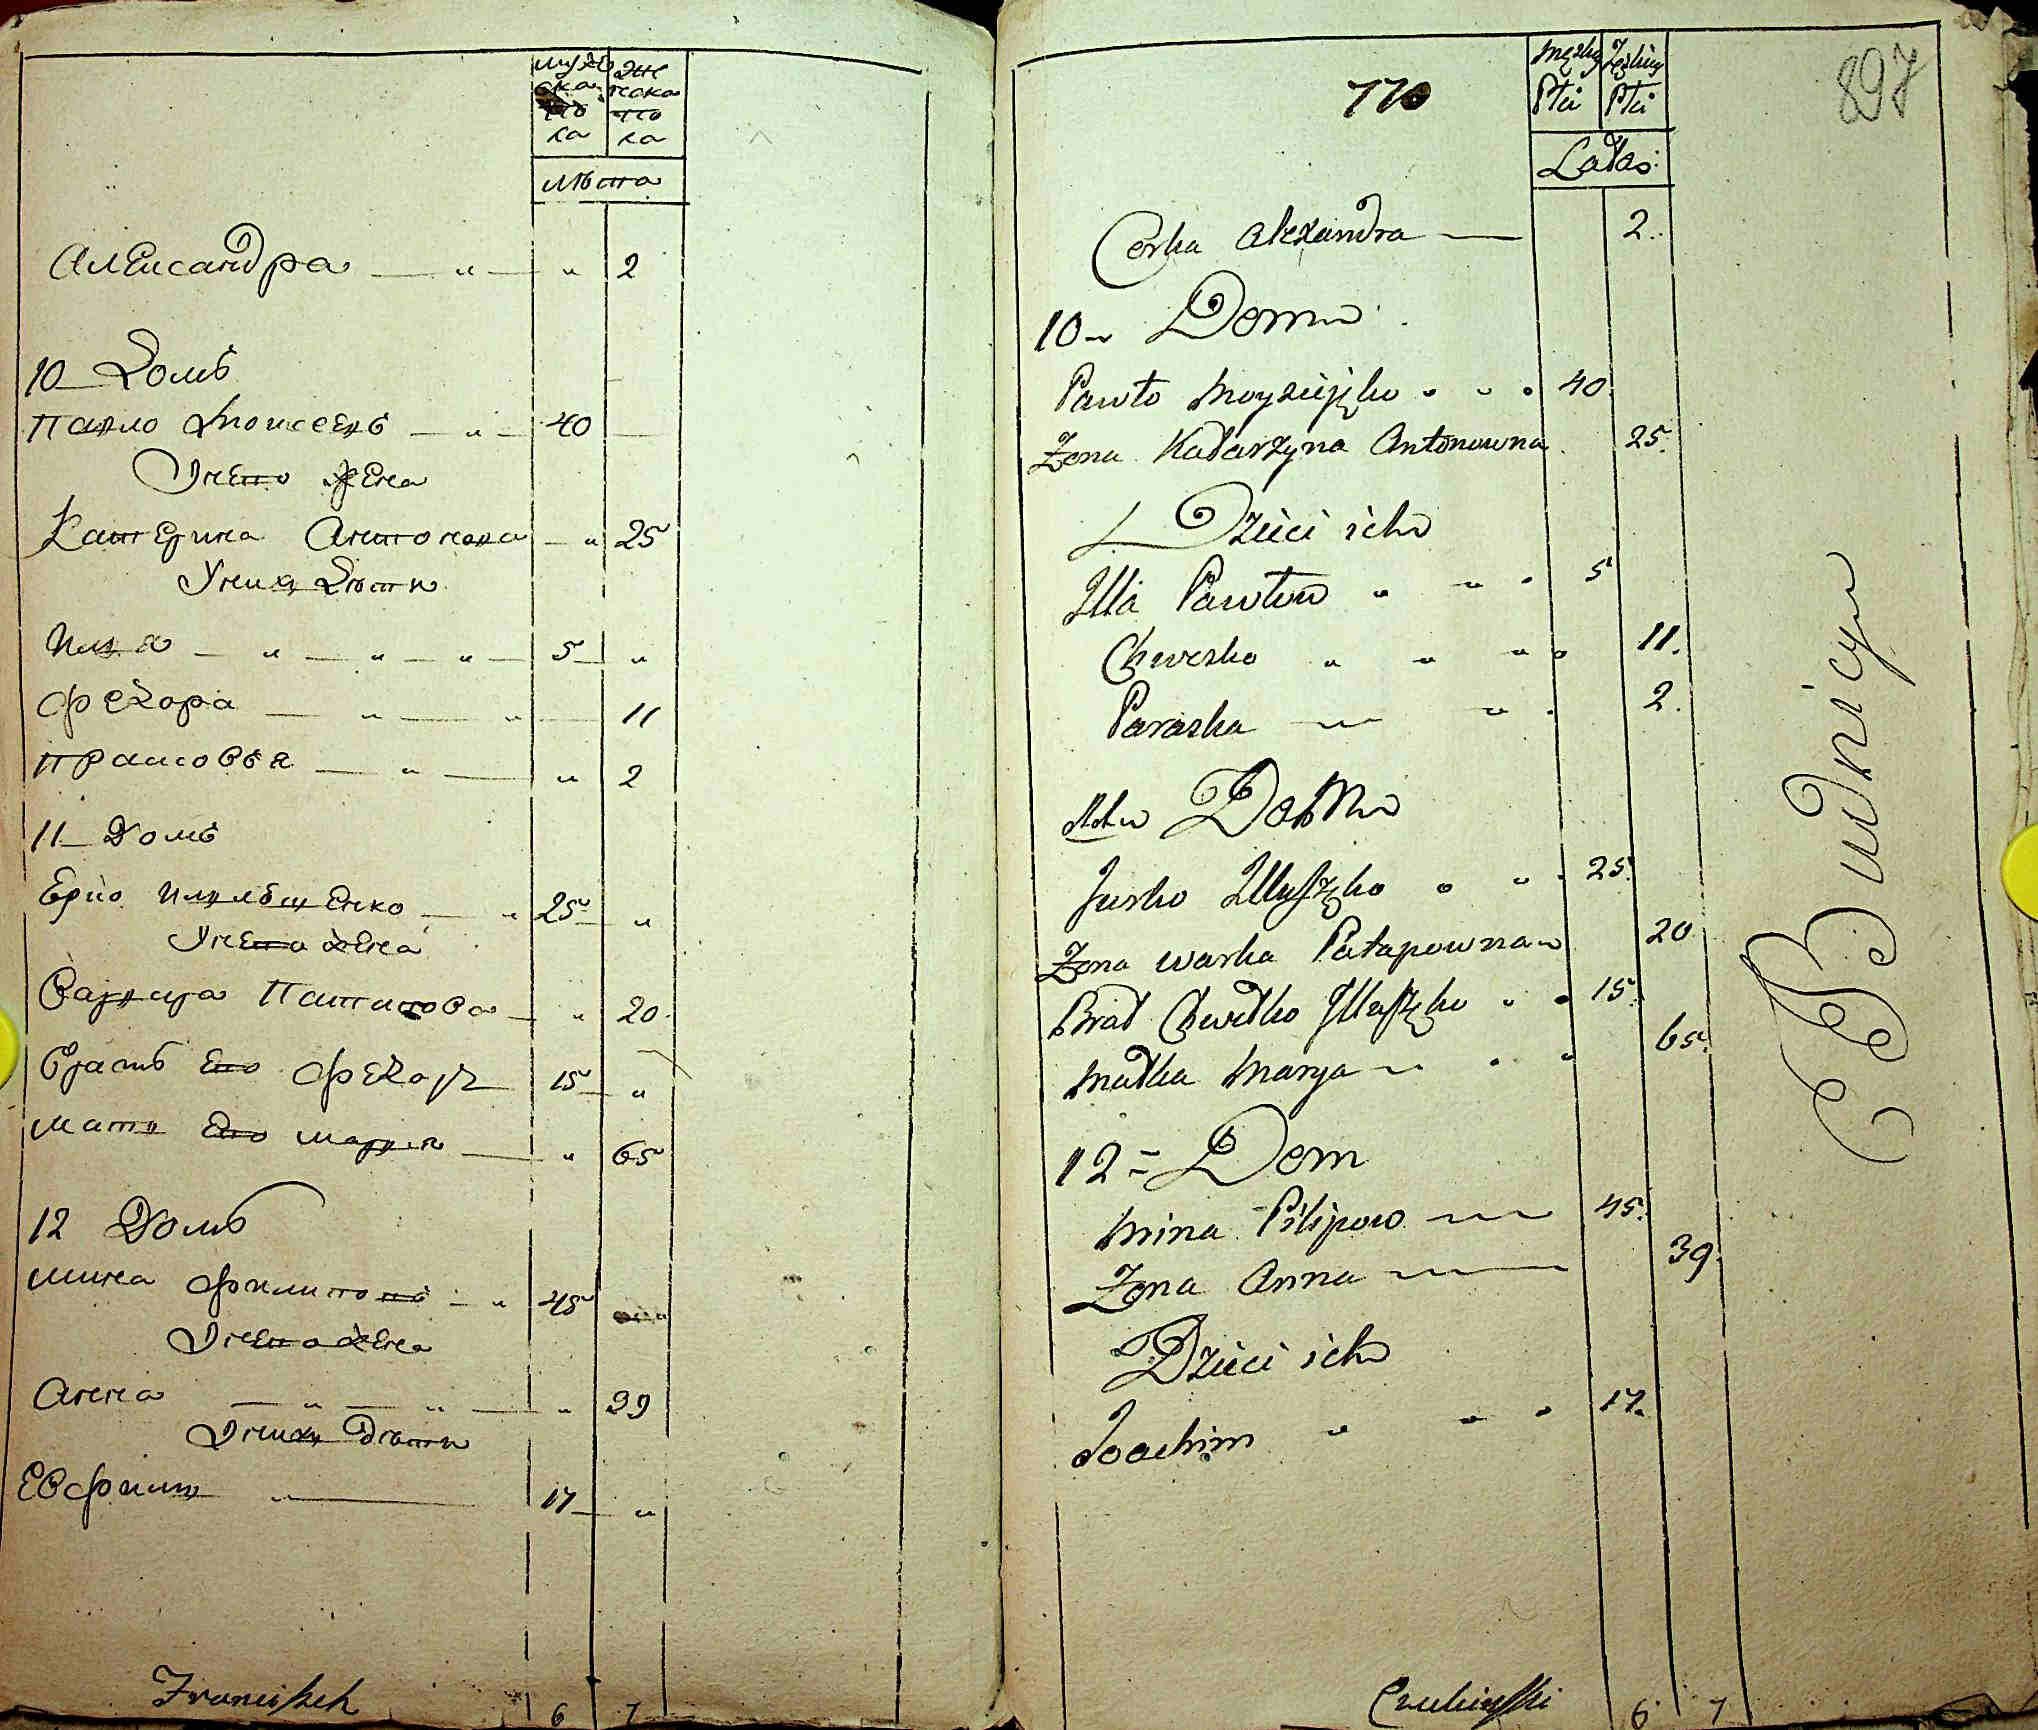 мужеска пола
женска пола
лѣта
Александра 2
10 Домъ
Павло Моисеевъ 40
У него жена
Катерина Антонова 25
У них дѣти
Илия 5
Федора 11
Прасовья 2
11 Домъ
У него жена
25
Варвара Потапова 20
Братъ его Федоръ 15
Мати его Мария 65
12 Домъ
Мина Филиповъ 45
У него жена
Анна 39
У них дѣти
Евфим 17
Franciszek 6 7
770
897
Męzkiey Płci
Żeńskiey Płci
Lata
Corka Alexandra 2
10 Dom
Pawło Moyziejęko 40
Zona Katarzyna Antonowna 25
Dzieci ich
Illa Pawłow 5
Chweska 11
Paraska 2
Dom
Jurko Illaszęko 25
Zona Warka Patapowna 20
Brat Chwedko Illaszęko 15
Matka Marya 65
12 Dom
Mina Pilipow 45
Zona Anna 39
Dzieci ich
Joachim 17
6 7
Budnicy